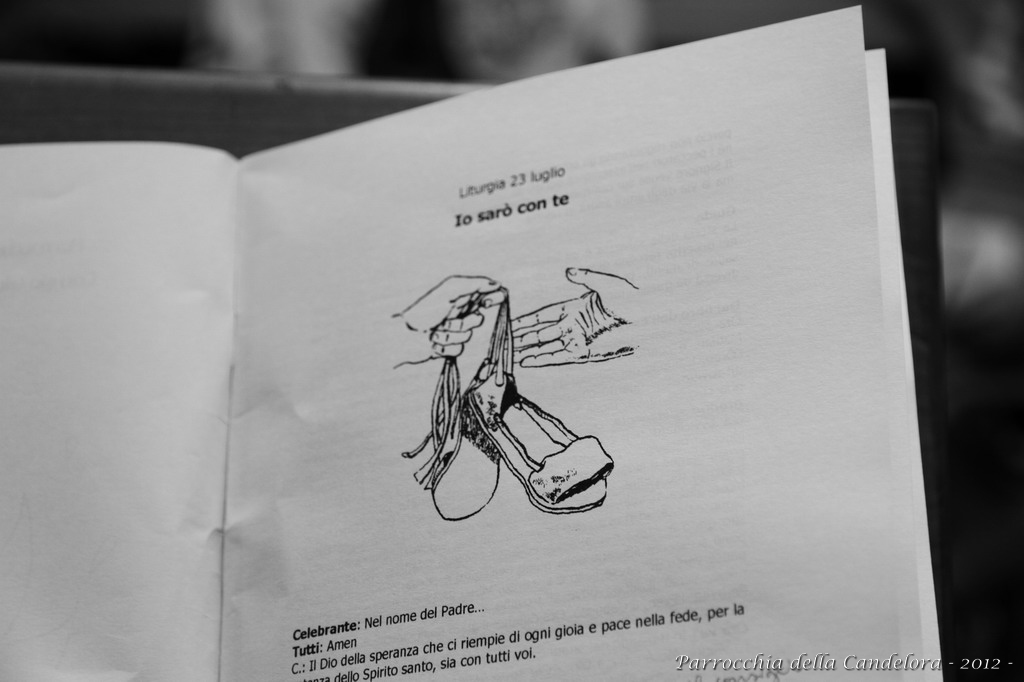 Liturgia 23 luglio
Io sarò con te
Celebrante: Nel nome del Padre...
Tutti: Amen
C.: Il Dio della speranza che ci riempie di ogni gioia e pace nella fede, per la
dello Spirito santo, sia con tutti voi.
Parrocchia della Candelora - 2012 -